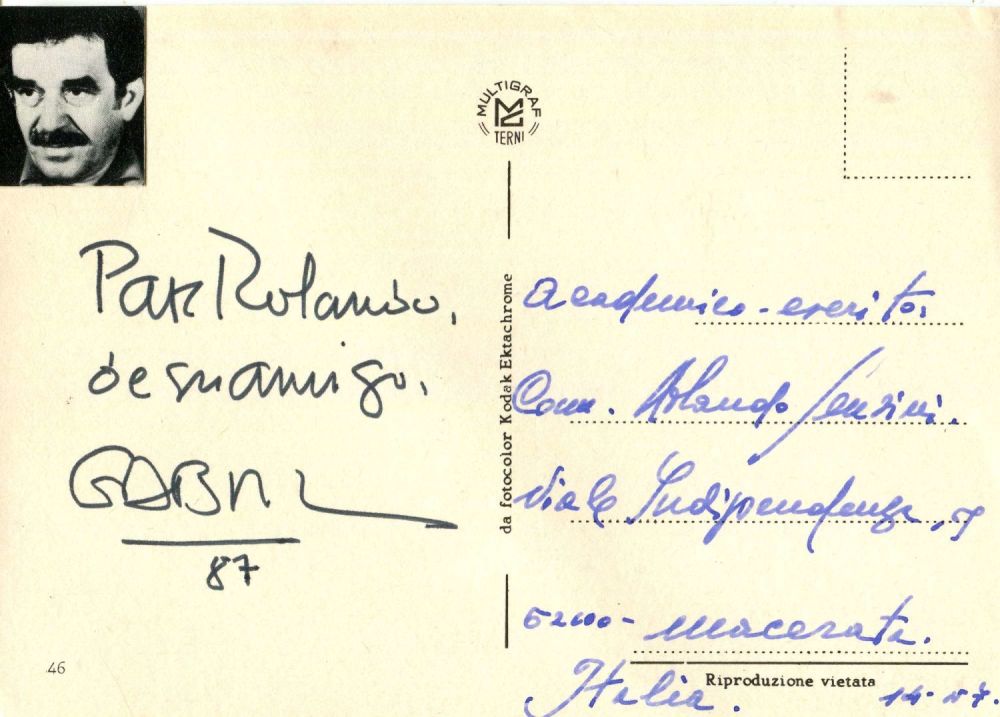 MULTIGRAF
TERNI
Para Rolando,
de su amigo,
GABRIEL
87
46
da fotocolor Kodak Ektachrome
Com. Rolando
Viale Indipendenza,
62100 - Macerata.
Italia.
Riproduzione vietata